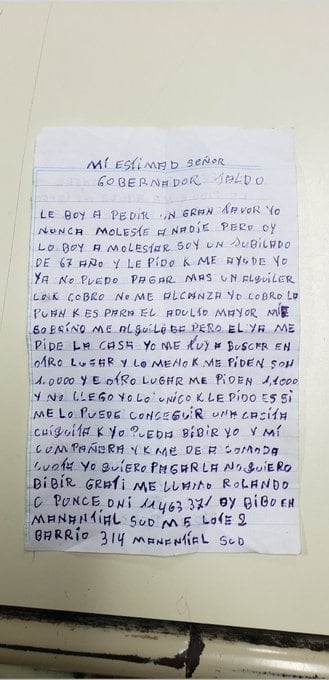 MI ESTIMAD SEÑOR
GOBERNADOR JALDO
LE BOY A PEDIR UN GRAN FAVOR YO
NUNCA MOLESTE A NADIE PERO OY
LO BOY A MOLESTAR SOY UN JUBILADO
DE 67 AÑO Y LE PIDO K ME AYUDE YO
YA NO PUEDO PAGAR MAS UN ALQUILER
LO K COBRO NO ME ALCANZA YO COBRO LA
PUAN K ES PARA EL ADULTO MAYOR MI
SOBRINO ME ALQUILABA PERO EL YA ME
PIDE LA CASA YO ME FUY A BUSCAR EN
OTRO LUGAR Y LO MENO K ME PIDEN SON
1.0000 Y E OTRO LUGAR ME PIDEN 1,1000
Y NO LLEGO YO LO UNICO K LE PIDO ES SI
ME LO PUEDE CONSEGUIR UNA CASITA
CHIGUITA K YO PUEDA BIBIR YO Y MI
COMPAÑERA Y K ME DE A COMODA
CUOTA YO QUIERO PAGARLA NO QUIERO
BIBIR GRATI ME LLAMO ROLANDO
C PONCE DNI 11463371 OY BIBO EN
MANANTIAL SUD M E LOTE 2
BARRIO 314 MANENTIAL SUD